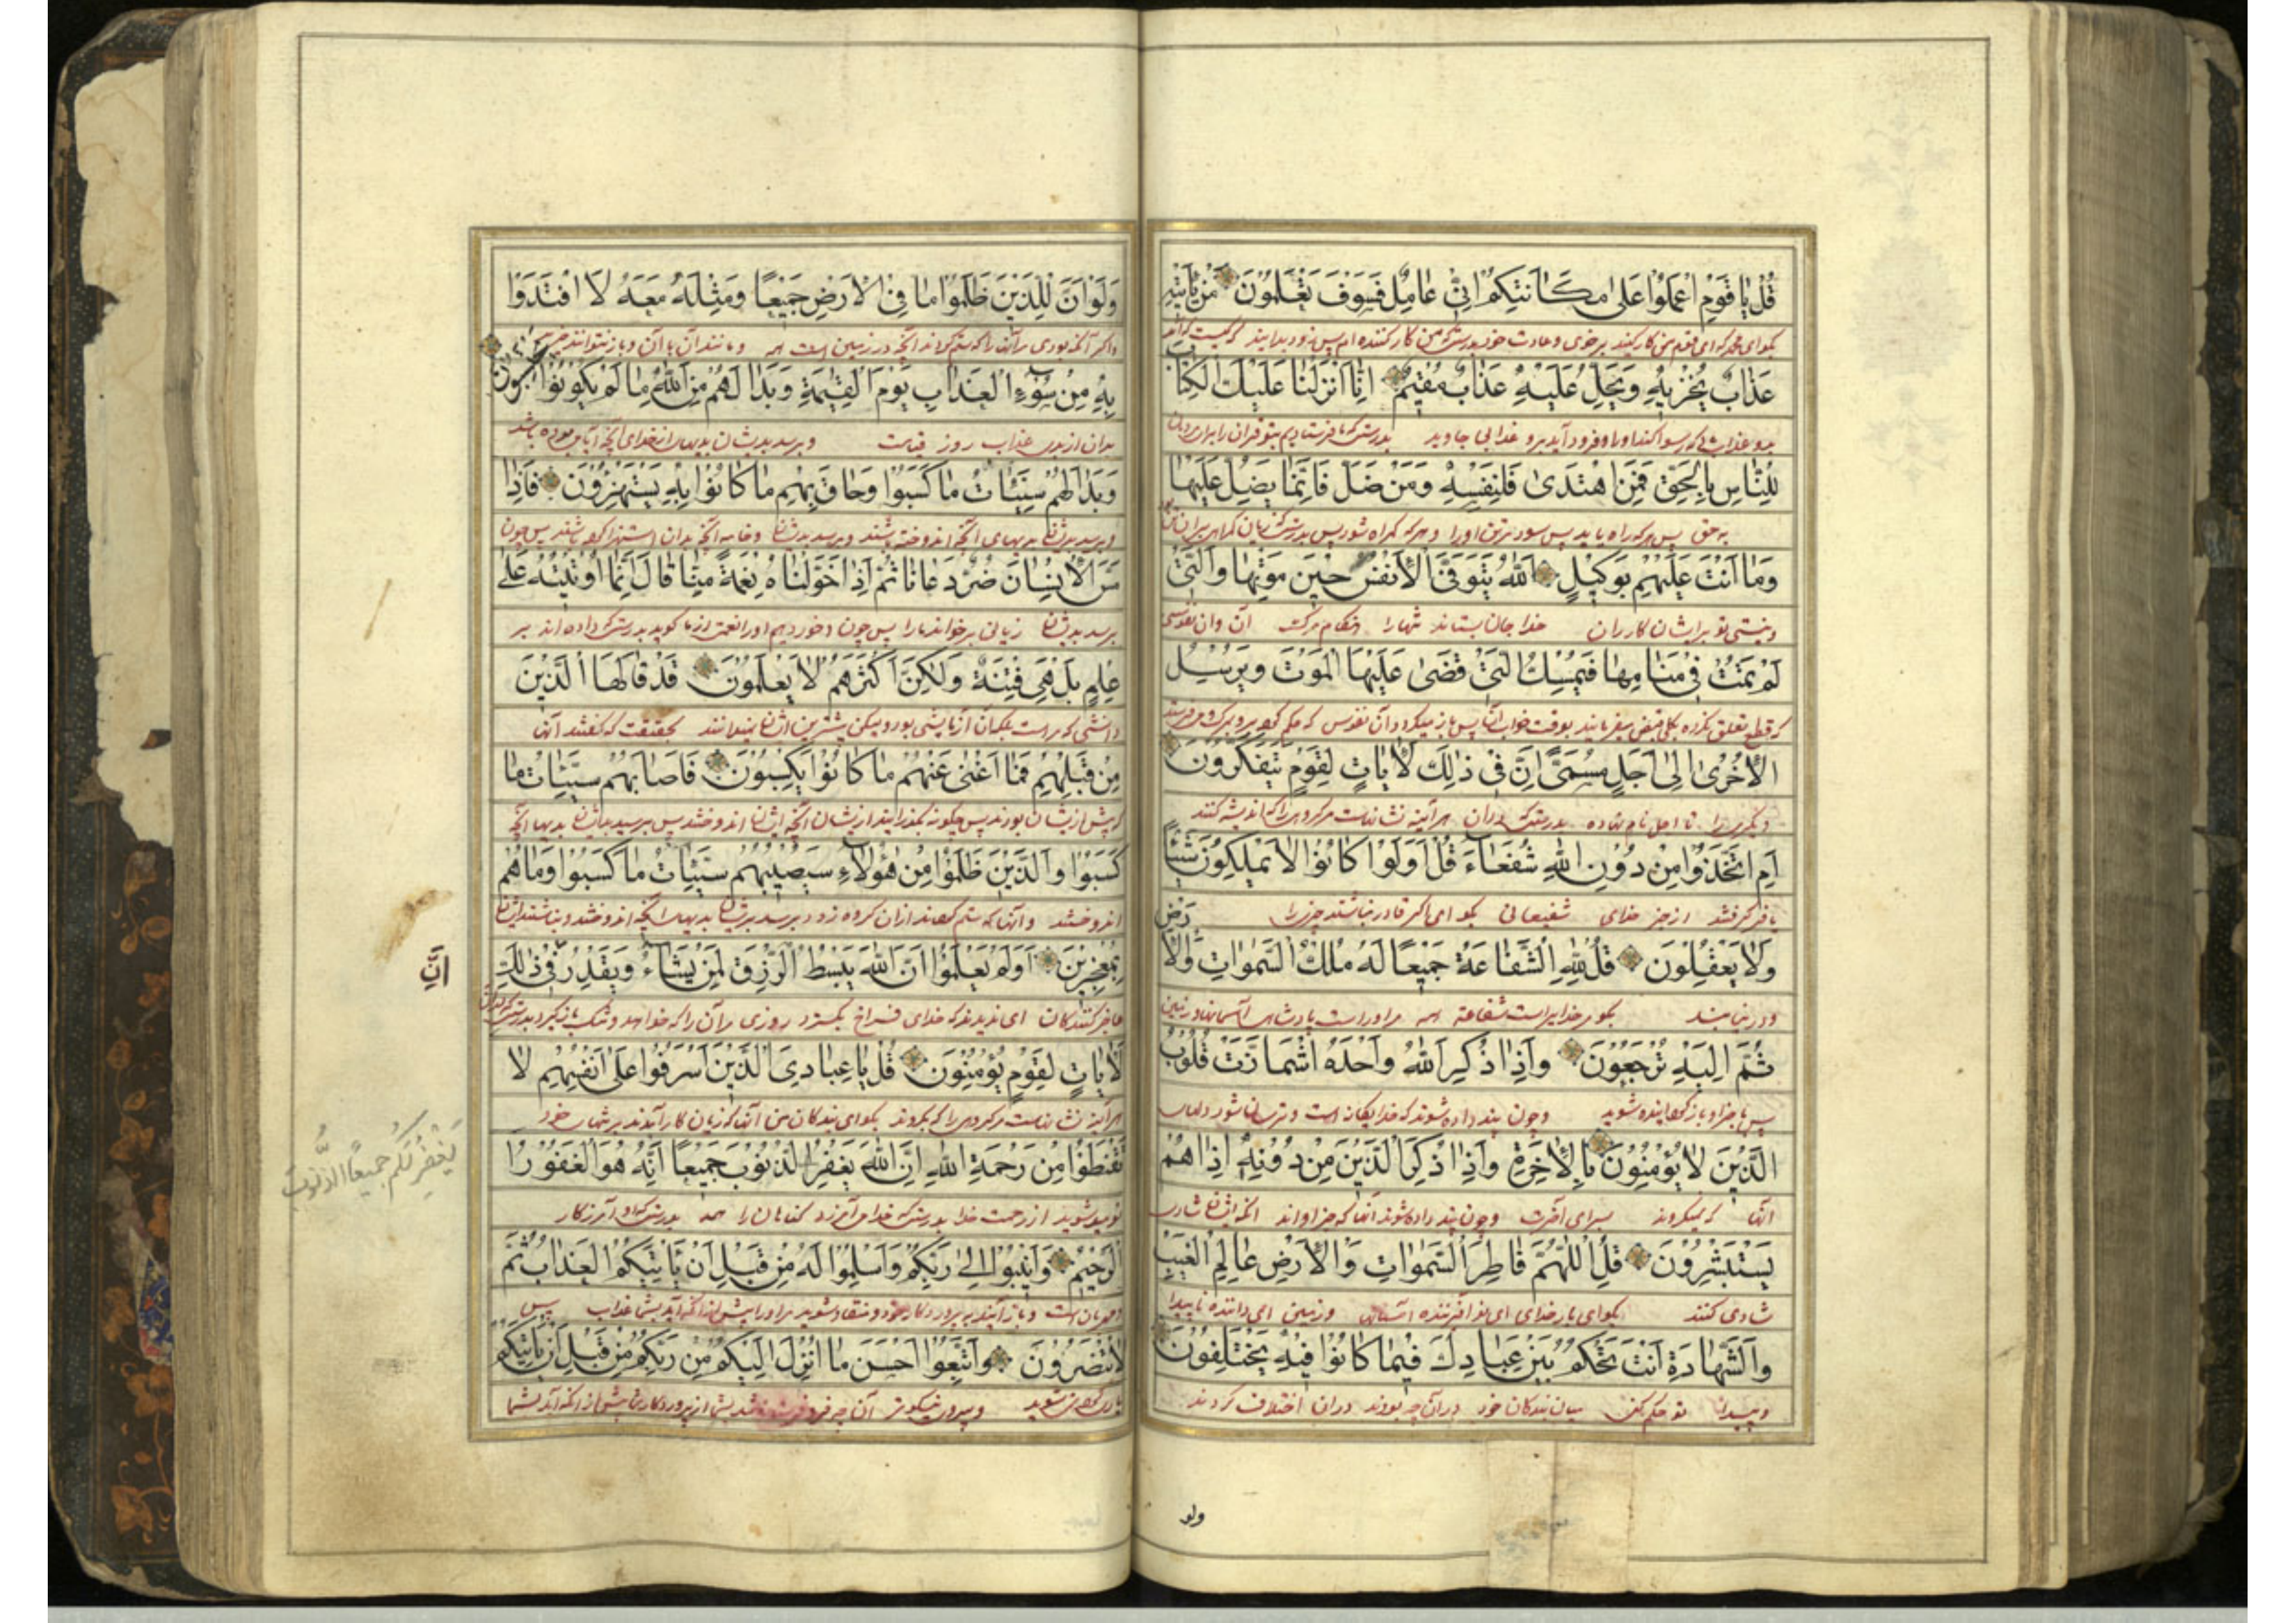 قُلْ یٰا قَوْمِ اعْمَلُوا عَلیٰ مَکٰانَتِکُمْ اِنّی عٰامِلٌ فَسَوْفَ تَعْلَمُونَ مَنْ یَأْتیهِ
بکو ای محمد که ای قوم من کار کنید بر خوی و عادت خود بدرستیکه من کار کننده ام پس زود بدانید که کیست که آید
عَذٰابٌ یُخْزیهِ وَیَحِلُّ عَلَیْهِ عَذٰابٌ مُقیمٌ اِنّٰا اَنْزَلْنٰا عَلَیْکَ الْکِتٰابَ
بدو عذابی که رسوا کند او را و فرود آید برو عذابی جاوید بدرستیکه ما فرستادیم بتو قرآن را برای مردمان
لِلنّٰاسِ بِالْحَقِّ فَمَنِ اهْتَدیٰ فَلِنَفْسِهِ وَمَنْ ضَلَّ فَاِنَّمٰا یَضِلُّ عَلَیْهٰا
به حق پس هر که راه یابد پس سود مر تن او را و هر که کمراه شود پس بدرستیکه زیان کمراهی بر آن تن بود
وَمٰا اَنْتَ عَلَیْهِمْ بِوَکیلٍ اَللّٰهُ یَتَوَفَّی الْاَنْفُسَ حینَ مَوْتِهٰا وَالَّتی
و نیستی تو بر ایشان کار ران خدا جان بستاند تنها را هنکام مرک آن و آن نفوسی
لَمْ تَمُتْ فی مَنٰامِهٰا فَیُمْسِکُ الَّتی قَضیٰ عَلَیْهَا الْمَوْتَ وَیُرْسِلُ
که قطع تعلق نکرده بکلی قبض میفرمایند بوقت خواب آن پس باز میکیرد آن نفوس که حکم کرده برو بمرک و می فرستد
الْاُخْریٰ اِلیٰ اَجَلٍ مُسَمًّی اِنَّ فی ذٰلِکَ لَاٰیٰاتٍ لِقَوْمٍ یَتَفَکَّرُونَ
دیکری را تا اجل نام نهاده بدرستیکه در آن هر آینه نشانهاست مر کروهی را که اندیشه کنند
اَمِ اتَّخَذُوا مِنْ دُونِ اللّٰهِ شُفَعٰاءَ قُلْ اَوَلَوْ کٰانُوا لاٰ یَمْلِکُونَ شَیْئًا
یا فرا کرفتند از جز خدای شفیعانی بکو ای اکر قادر نباشند چیزی را
وَلاٰ یَعْقِلُونَ قُلْ لِلّٰهِ الشَّفٰاعَةُ جَمیعًا لَهُ مُلْکُ السَّمٰوٰاتِ وَالْاَرْضِ
و در نیابند بکو مر خدایراست شفاعة همه مر او راست پادشاهی آسمانها و زمین
ثُمَّ اِلَیْهِ تُرْجَعُونَ وَاِذٰا ذُکِرَ اللّٰهُ وَاحْدَهُ اشْمَأَزَّتْ قُلُوبُ
پس با جزاو باز کردانیده شوید و چون پند داده شوند که خدا یکانه است و ترسان شود دلهای
الَّذینَ لاٰ یُؤْمِنُونَ بِالْاٰخِرَةِ وَاِذٰا ذُکِرَ الَّذینَ مِنْ دُونِهِ اِذٰا هُمْ
آنها که نمیکروند بسرای آخرت و چون پند داده شوند آنها که جز او اند آنکه ایشان شادی
یَسْتَبْشِرُونَ قُلِ اللّٰهُمَّ فٰاطِرَ السَّمٰوٰاتِ وَالْاَرْضِ عٰالِمَ الْغَیْبِ
شادی کنند بکو ای بار خدای ای نو آفریننده آسمانها و زمین ای داننده ناپیدا
وَالشَّهٰادَةِ اَنْتَ تَحْکُمُ بَیْنَ عِبٰادِکَ فیمٰا کٰانُوا فیهِ یَخْتَلِفُونَ
و پیدا تو حکم کنی میان بندکان خود در آن چه بودند در آن اختلاف کردند
ولو
وَلَوْ اَنَّ لِلَّذینَ ظَلَمُوا مٰا فِی الْاَرْضِ جَمیعًا وَمِثْلَهُ مَعَهُ لَا افْتَدَوْا
و اکر آنکه بودی مر آنها را که ستم کرده اند آنچه در زمین است همه و مانند آن با آن و باز نتوانند خرید
بِهِ مِنْ سُوٓءِ الْعَذٰابِ یَوْمَ الْقِیٰمَةِ وَبَدٰا لَهُمْ مِنَ اللّٰهِ مٰا لَمْ یَکُونُوا یَحْتَسِبُونَ
بدان از بدی عذاب روز قیامت و برسد بدیشان بدیها از خدای آنچه
وَبَدٰا لَهُمْ سَیِّئٰاتُ مٰا کَسَبُوا وَحٰاقَ بِهِمْ مٰا کٰانُوا بِهِ یَسْتَهْزِؤُنَ فَاِذٰا
و برسد بدیشان بدیهای آنچه اندوخته باشند و برسد بدیشان آنچه بدان استهزا کرده باشند پس چون
مَسَّ الْاِنْسٰانَ ضُرٌّ دَعٰانٰا ثُمَّ اِذٰا خَوَّلْنٰاهُ نِعْمَةً مِنّٰا قٰالَ اِنَّمٰا اُوتیتُهُ عَلیٰ
برسد بدیشان زیانی بر خواند ما را پس چون دهیم او را نعمت از ما کوید بدرستیکه داده اند بر
عِلْمٍ بَلْ هِیَ فِتْنَةٌ وَلٰکِنَّ اَکْثَرَهُمْ لاٰ یَعْلَمُونَ قَدْ قٰالَهَا الَّذینَ
دانشی که مراست بلکه آن آزمایشی بود ولیکن بیشترین ایشان نمیدانند بحقیقت که کفتند آنها
مِنْ قَبْلِهِمْ فَمٰا اَغْنیٰ عَنْهُمْ مٰا کٰانُوا یَکْسِبُونَ فَاَصٰابَهُمْ سَیِّئٰاتُ مٰا
که پیش از ایشان بودند پس چکونه بکذرانید از ایشان آنچه ایشان اندوختند پس برسید بدیشان بدیها آنچه
کَسَبُوا وَالَّذینَ ظَلَمُوا مِنْ هٰؤُلاٰءِ سَیُصیبُهُمْ سَیِّئٰاتُ مٰا کَسَبُوا وَمٰا هُمْ
اندوختند و آنها که ستم کرده اند از آن کروه زود برسد بدیشان بدیهای آنچه اندوختند و نباشند ایشان
بِمُعْجِزینَ اَوَلَمْ یَعْلَمُوا اَنَّ اللّٰهَ یَبْسُطُ الرِّزْقَ لِمَنْ یَشٰاءُ وَیَقْدِرُ فی ذٰلِکَ
اِنَّ
عاجز کنندکان ای ندیدند که خدای فراخ بکسترد روزی مر آن را که خواهد و تنک باز کیرد بدرستیکه در آن
لَاٰیٰاتٍ لِقَوْمٍ یُؤْمِنُونَ قُلْ یٰا عِبٰادِیَ الَّذینَ اَسْرَفُوا عَلیٰ اَنْفُسِهِمْ لاٰ
هر آینه نشانهاست مر کروهی را که بکروند بکو ای بندکان من آنها که زیان کار آمدند بر تنهای خود
تَقْنَطُوا مِنْ رَحْمَةِ اللّٰهِ اِنَّ اللّٰهَ یَغْفِرُ الذُّنُوبَ جَمیعًا اِنَّهُ هُوَ الْغَفُورُ
یَغْفِرُ لَکُمْ جمیعًا الذُّنُوبَ
نومید مشوید از رحمت خدا بدرستیکه خدای آمرزد کناهان را همه بدرستیکه او آمرزکار
الرَّحیمُ وَاَنیبُوا اِلیٰ رَبِّکُمْ وَاَسْلِمُوا لَهُ مِنْ قَبْلِ اَنْ یَأْتِیَکُمُ الْعَذٰابُ ثُمَّ
و مهربان است و باز آیید به پروردکار خود و منقاد شوید مر او را پیش از آنکه آید بشما عذاب پس
لاٰ تُنْصَرُونَ وَاتَّبِعُوا اَحْسَنَ مٰا اُنْزِلَ اِلَیْکُمْ مِنْ رَبِّکُمْ مِنْ قَبْلِ اَنْ یَأْتِیَکُمُ
یاری کرده نشوید و پیروی نیکوتر آن چه فرو فرستاده شد بشما از پروردکار شما پیش از آنکه آید بشما